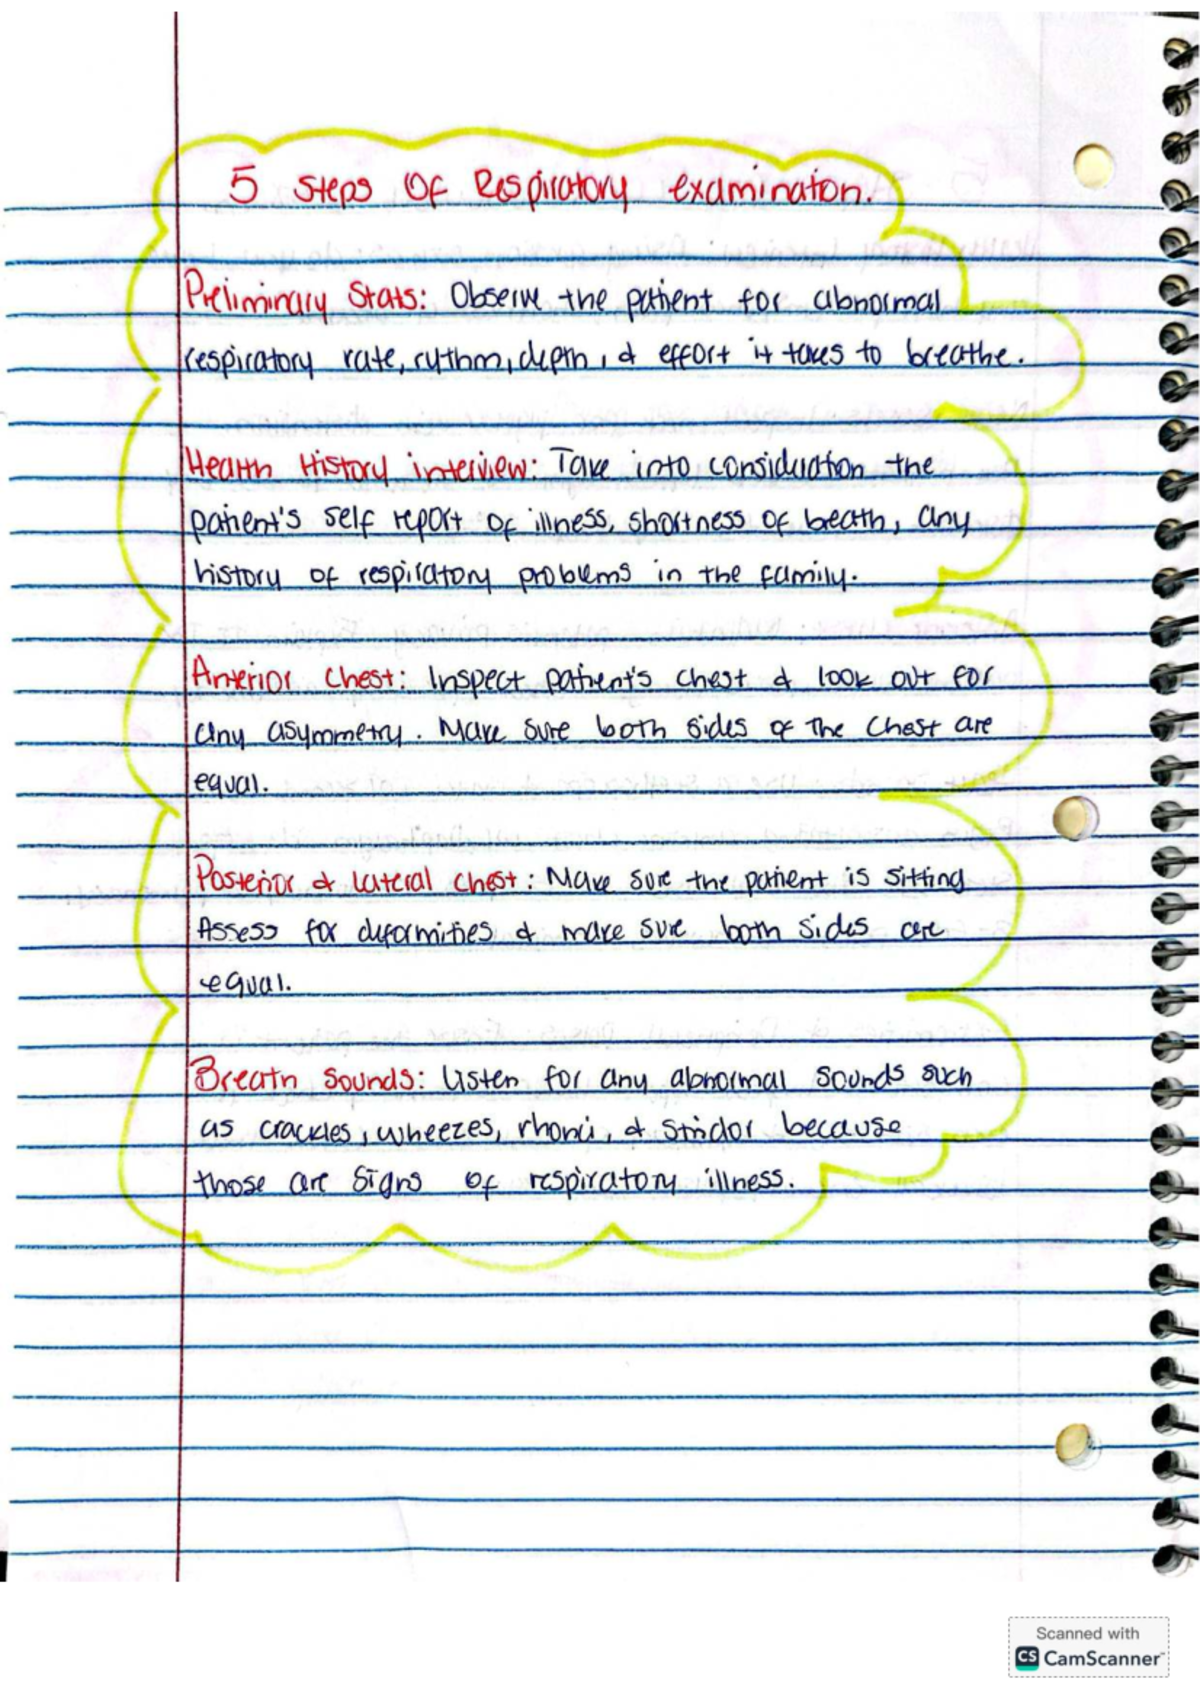 5 Steps Of Respiratory examination.
Preliminary Stats: Observe the patient for abnormal
respiratory rate, rythm, depth, & effort it takes to breathe.
Health History interview: Take into consideration the
patient's self report of illness, shortness of breath, any
history of respiratory problems in the family.
Anterior Chest: Inspect patient's chest & look out for
any asymmetry. Make sure both sides of the chest are
equal.
Posterior & lateral chest: Make sure the patient is sitting
Assess for deformities & make sure both sides are
equal.
Breath Sounds: Listen for any abnormal sounds such
as crackles, wheezes, rhonci, & stridor because
those are signs of respiratory illness.
Scanned with
CS CamScanner